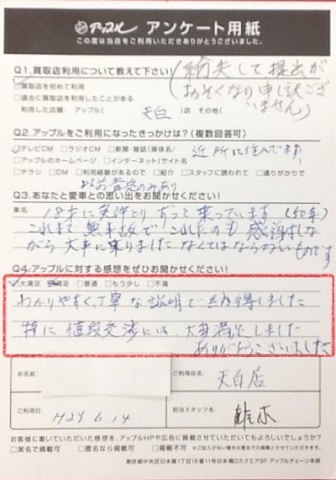 アップル アンケート用紙
この度は当店をご利用いただきありがとうございました。
Q1.買取店利用について教えて下さい
紛失して提出が
おそくなり申し訳ござ
いません
買取店を初めて利用
過去に買取店を利用したことがある
利用した店舗: アップル( 天白 )店 その他(
Q2.アップルをご利用になったきっかけは?(複数回答可)
テレビCM ラジオCM 新聞・雑誌(媒体名)
近所に住んでます
アップルのホームページ インターネット(サイト名)
チラシ DM 利用経験があるので 紹介 スタッフに誘われて 通りがかりで
Q3.あなたと愛車との思い出をお聞かせください!
車名
18才に免許とりずっと乗っています
これまで無事故で これたのも 感謝しな
がら大事に乗りました なくてはならないものです
Q4.アップルに対する感想をぜひお聞かせください!
大満足 満足 普通 もう少し 不満
わかりやすく、丁寧な説明で 納得しました
特に 値段交渉には、大変満足しました
ありがとうございました
お名前
ご利用店名: 天白店
ご利用日 H29.6.14
担当スタッフ名:
お客様に書いていただいた感想を、アップルHPや広告に掲載させていただいてもよろしいでしょうか?
実名で掲載可 匿名なら掲載可 不可